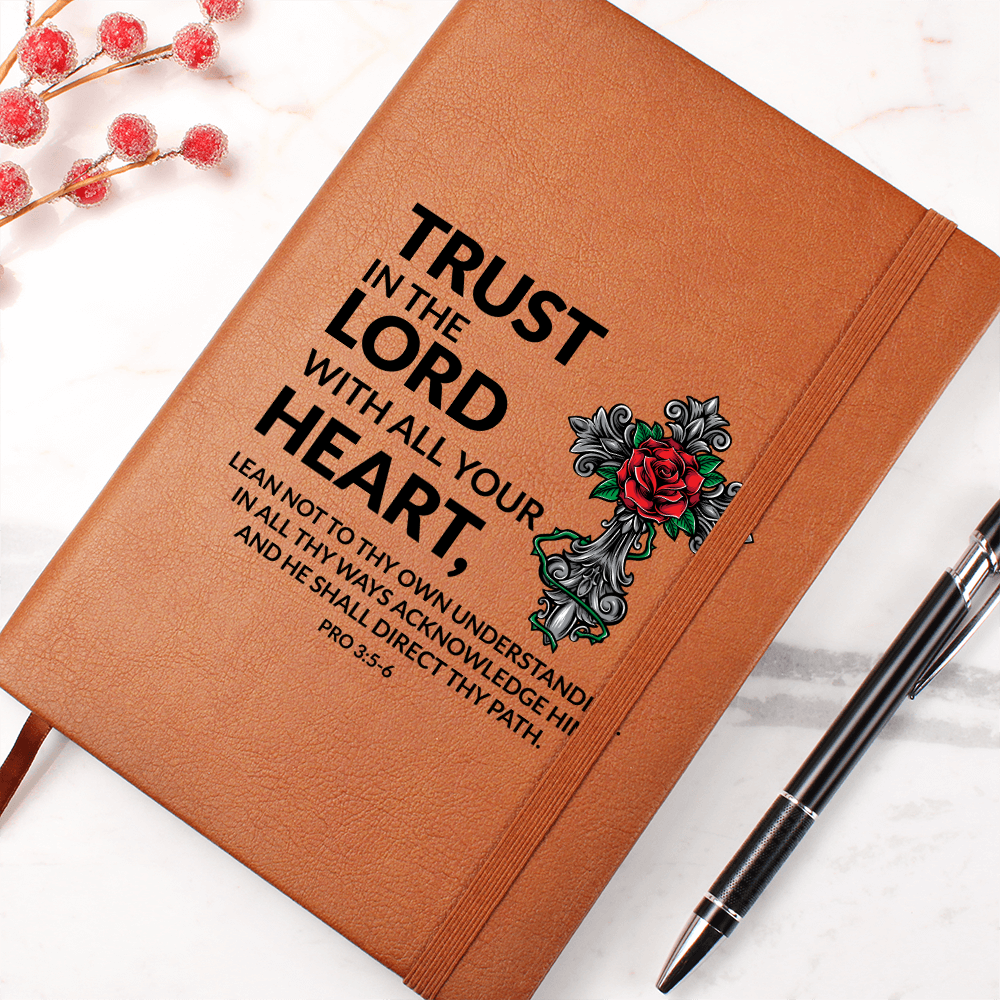 TRUST
IN THE
LORD
WITH ALL YOUR
HEART,
LEAN NOT TO THY OWN UNDERSTANDI
IN ALL THY WAYS ACKNOWLEDGE HIM.
AND HE SHALL DIRECT THY PATH.
PRO 3:5-6